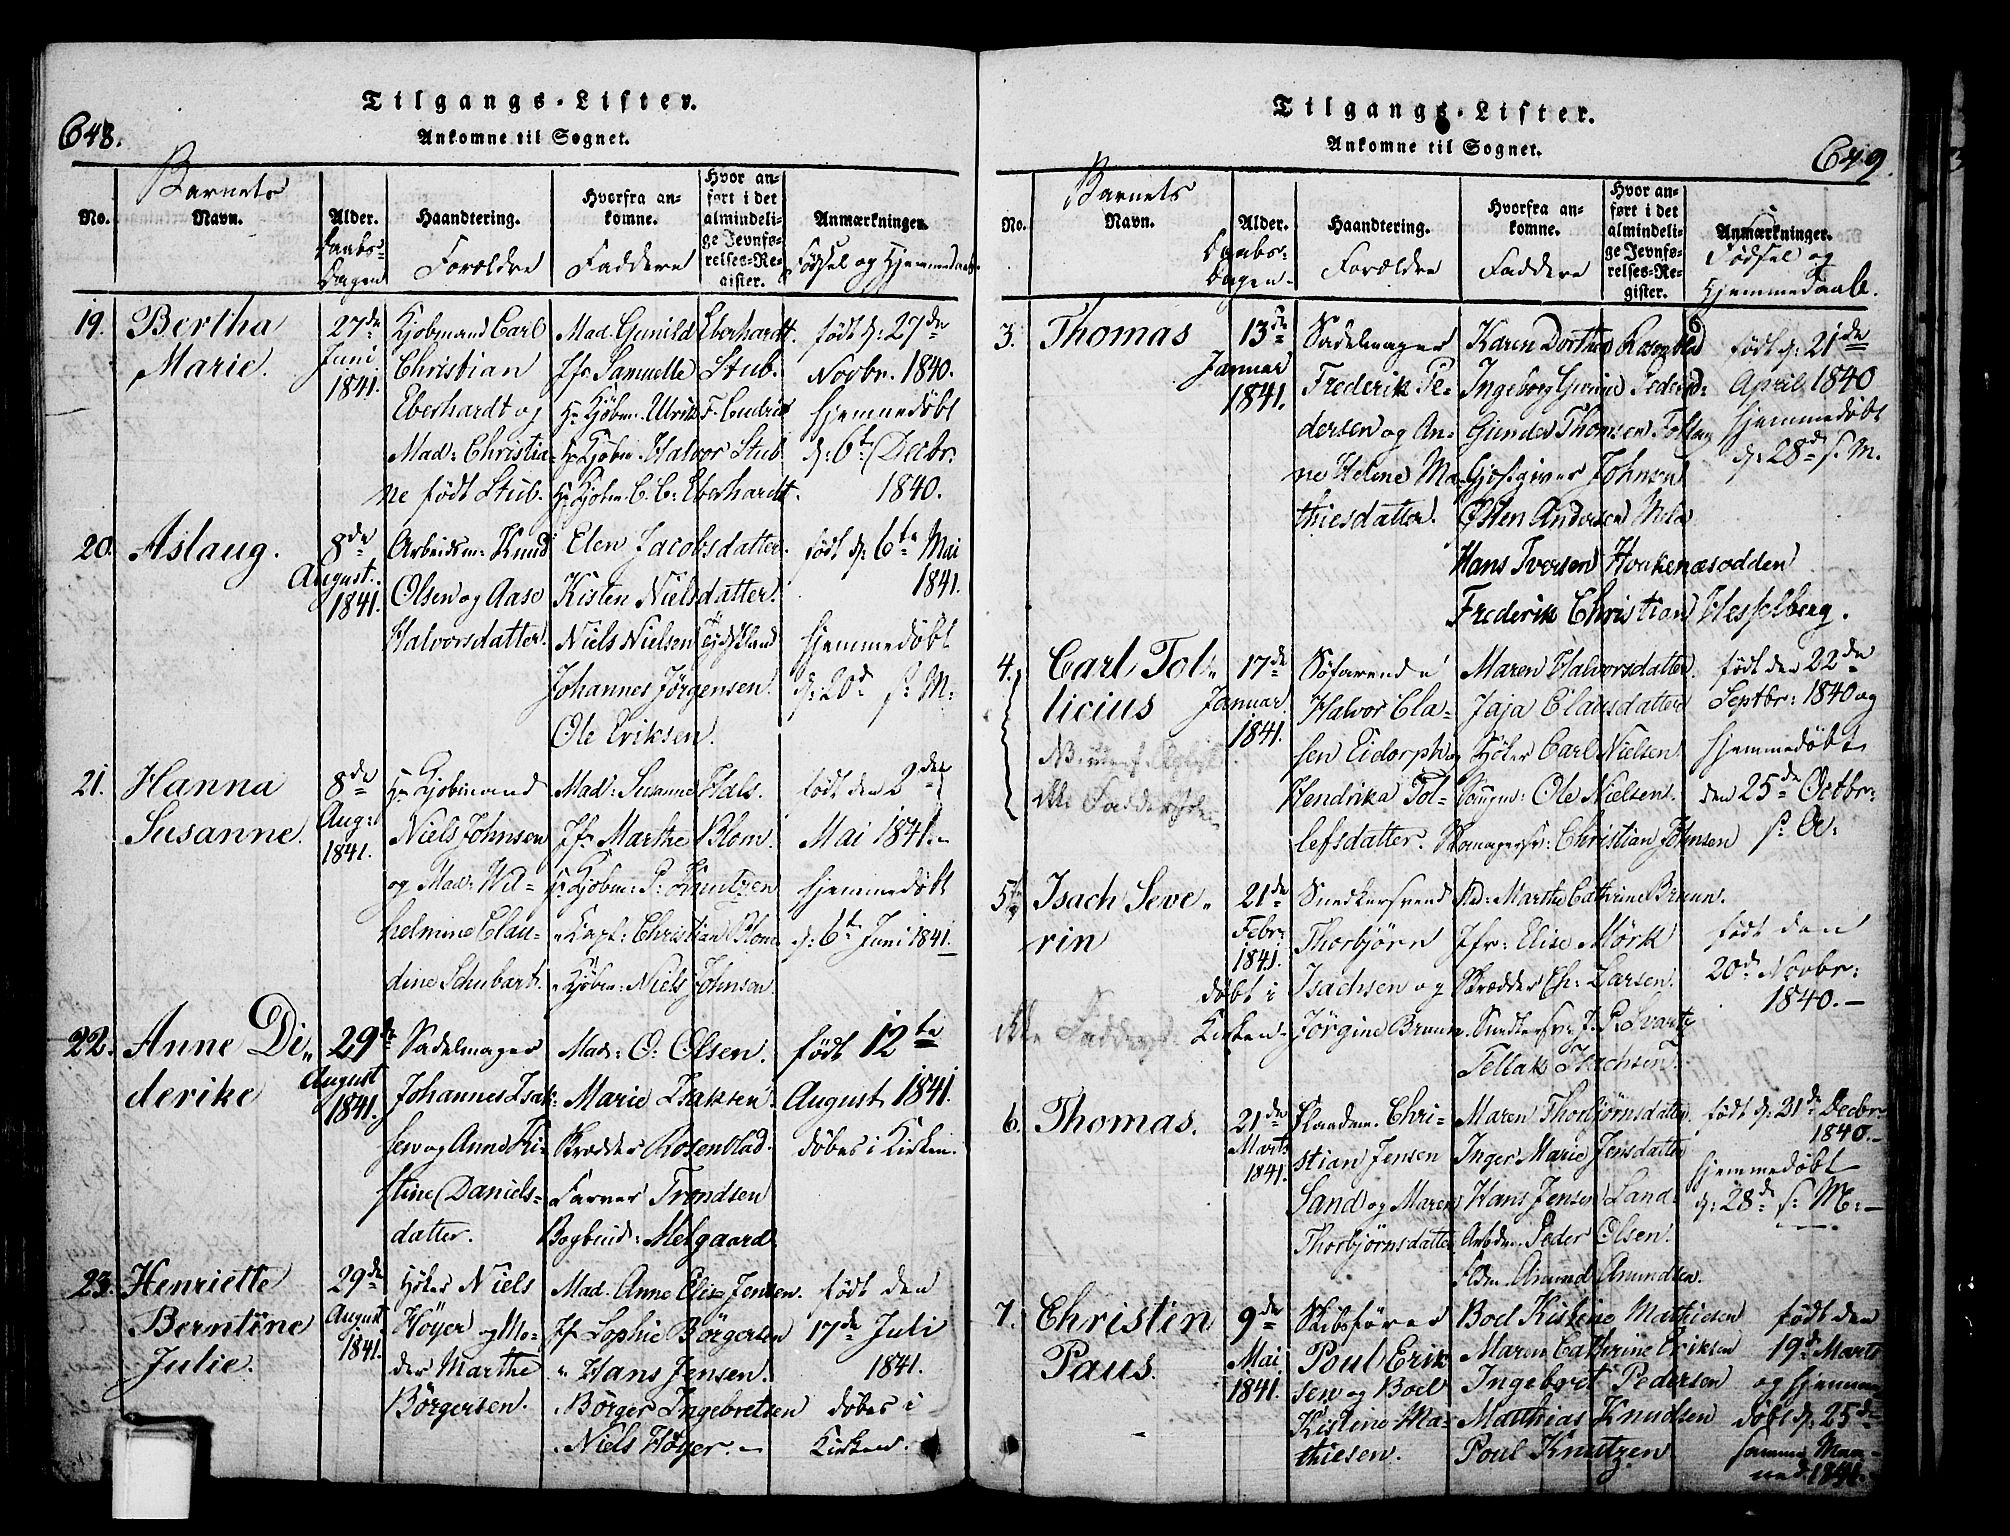 Tilgangs-Lister.
648.
Ankomne til Sognet.
Barnets
No.
Navn.
Alder.
Daabs-
Dagen
Haandtering.
Forældre
Hvorfra an-
komne.
Faddere
Hvor an-
ført i det
almindeli-
ge Jevnfø-
relses-Re-
gister.
Anmærkninger.
Fødsel og Hjemmedaab
19.
Bertha
Marie.
27de
Juni
1841.
Kjøbmand Carl
Christian
Eberhardt og
Mad: Christia-
ne født Stub.
Mad. Gunild Eberhardt.
Jfr Samuelle Stub.
Hr Kjøbm. Ulrik F.
Hr Kjøbm. Halvor Stub
Hr Kjøbm. C. C. Eberhardt.
født d: 27de
Novbr. 1840.
hjemmedøbt
d: 6te Decbr.
1840.
20.
Aslaug.
8de
August.
1841.
Arbeidsm: Knud
Olsen og Aase
Halvorsdatter.
Elen Jacobsdatter.
Kisten Nielsdatter.
Niels Nielsen Tydskland
Johannes Jörgensen.
Ole Eriksen.
født d: 6te Mai
1841.
hjemmedøbt
d: 20de s: M:
21.
Hanna
Susanne.
8de
Aug:
1841.
Hr Kjøbmand
Niels Johnsen
og Mad: Wil-
helmine Clau-
dine Schubart.
Mad: Susanne Hals.
Jfr Marthe Blom.
Hr Kjøbm: P: Knutzen
" Capt: Christian Blom
" Kjøbm: Niels Johnson.
født den 2den
Mai 1841.
hjemmedøbt
d: 6te Juni 1841.
22.
Anne Di-
derike
29de
August
1841.
Sadelmager
Johannes Isak-
sen og Anne Ki-
stine Daniels-
datter.
Mad: O: Olsen.
Marie Isaksen
Skrædder Rosenblad.
Farver Trondsen
Bogbind: Melgaard.
født 12te
August 1841.
døbes i Kirken.
23.
Henriette
Berntine
Julie.
29de
August
1841.
Høker Niels
Höyer og Mo-
der Marthe
Börgersen.
Mad. Anne Elise Jensen.
Jfr Sophie Börgersen
" Hans Jensen.
Börger Ingebretsen
Niels Höyer.
født den
17de Juli
1841.
døbes i
Kirken.
Tilgangs-Lister.
649.
Ankomne til Sognet.
Barnets
No.
Navn.
Alder.
Daabs-
Dagen.
Haandtering.
Forældre
Hvorfra an-
komne.
Faddere
Hvor an-
ført i det
almindeli-
ge Jevnfø-
relses-Re-
gister.
Anmærkninger.
Fødsel og
Hjemmedaab.
3.
Thomas
13de
Januar
1841.
Sadelmager
Frederik Pe-
dersen og An-
ne Helene Ma-
thiesdatter.
Karen Dorthea Rosenblad
Ingeborg Gurine Pedersd:
Gunder Thomsen
Gjæstgiver Johnsen
Østen Andersen
Hans Iversen Honkenæsodden
Frederik Christian Wesselberg.
født d: 21de
April 1840
hjemmedøbt
d: 28de s. M.
4.
Carl Tol-
licius
17de
Januar
1841.
Søfarende
Halvor Cla-
sen Eidorph og
Hendrika Tol-
lefsdatter.
Maren Halvorsdatter.
Jaja Clausdatter
Høker Carl Nielsen.
Ole Nielsen.
Christian Johnsen
født den 22de
Septbr: 1840 og
hjemmedøbt
den 25de Octbr:
s: A:
5.
Isach Seve-
rin
21de
Febr:
1841.
døbt i
Kirken.
Snedkersvend
Thorbjörn
Isachsen og
Jörgine Bruun.
Mad: Marthe Cathrine Bruun.
Jfr: Elise Mörk
Skrædder Ch: Larsen.
Snedkersv: J. P. Svartz
Tellak Isachsen.
født den
20de Novbr:
1840.
6.
Thomas.
21de
Marts
1841.
Strandm. Chri-
stian Jensen
Sand og Maren
Thorbjörnsdatter
Maren Thorbjörnsdatter.
Inger Marie Jensdatter
Hans Jensen Sand.
Arbdm. Peder Olsen.
Amund Amundsen.
født d: 21de Decbr:
1840.
hjemmedøbt
d: 28de s: M:
7.
Christen
Paus.
9de
Mai
1841.
Skibsfører
Poul Erik-
sen og Boel
Kistine Ma-
thiesen.
Boel Kistine Mathiesen
Maren Cathrine Eriksen
Ingebort Pedersen
Matthias Knudsen
Poul Knutzen.
født den
19de Marts
og hjemme-
døbt d: 25de
samme Maa-
ned 1841.